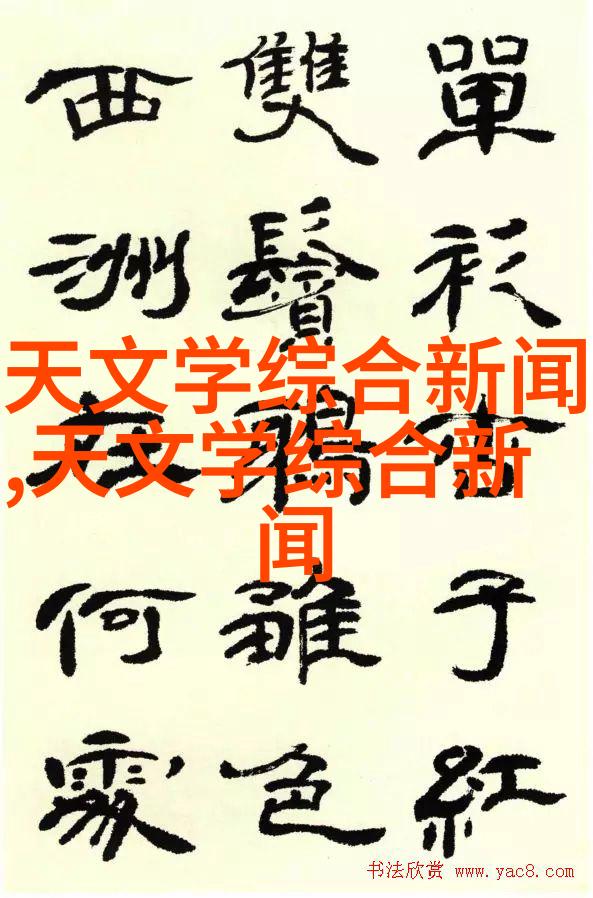 單衫杏子紅
雙鬢鴉雛色
西洲在何處
天文学综合新闻
,天文学综合新
闻
书法欣赏 www.yac8.com